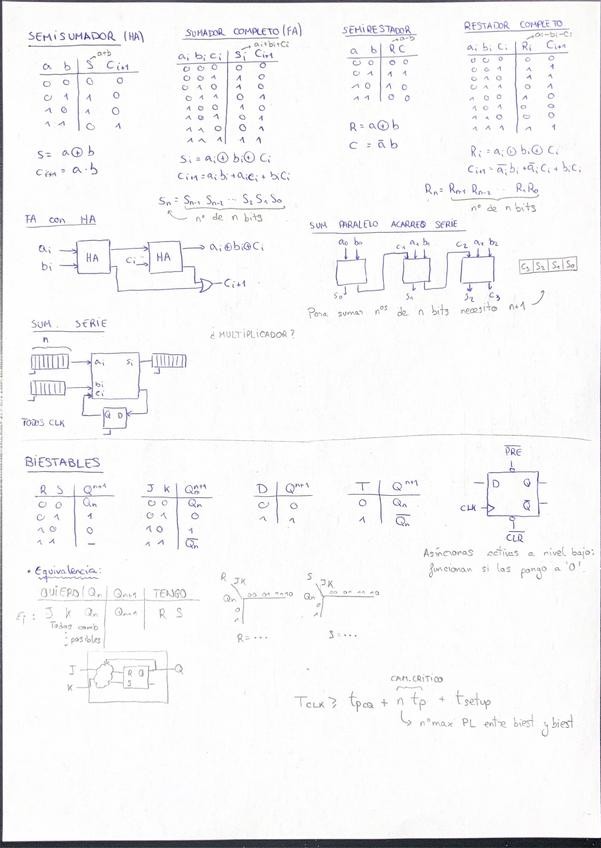 SEMISUMADOR (HA)
a+b
a b S Ci+1
0 0 0 0
0 1 1 0
1 0 1 0
1 1 0 1
S = a⊕b
Ci+1 = a·b
SUMADOR COMPLETO (FA)
ai+bi+ci
ai bi ci Si Ci+1
0 0 0 0 0
0 0 1 1 0
0 1 0 1 0
0 1 1 0 1
1 0 0 1 0
1 0 1 0 1
1 1 0 0 1
1 1 1 1 1
Si = ai⊕bi⊕Ci
Ci+1 = aibi+aici+biCi
Sn = Sn-1 Sn-2 ... S2 S1 S0
nº de n bits
SEMIRESTADOR
a-b
a b R C
0 0 0 0
0 1 1 1
1 0 1 0
1 1 0 0
R = a⊕b
C = a̅b
RESTADOR COMPLETO
ai-bi-Ci
ai bi Ci Ri Ci+1
0 0 0 0 0
0 0 1 1 1
0 1 0 1 1
0 1 1 0 1
1 0 0 1 0
1 0 1 0 0
1 1 0 0 0
1 1 1 1 1
Ri = ai⊕bi⊕Ci
Ci+1 = a̅ibi+a̅iCi+biCi
Rn = Rn-1 Rn-2 ... R1R0
nº de n bits
FA con HA
ai
bi
HA
Ci
HA
ai⊕bi⊕Ci
Ci+1
SUM PARALELO ACARREO SERIE
a0 b0
C1 a1 b1
C2 a1 b2
S0
S1
S2 C3
C3 S2 S1 S0
Para sumar nos de n bits necesito n+1
SUM. SERIE
n
ai
bi
ci
Si
Q D
TODOS CLK
¿MULTIPLICADOR?
BIESTABLES
R S Qn+1
0 0 Qn
0 1 1
1 0 0
1 1 —
J K Qn+1
0 0 Qn
0 1 0
1 0 1
1 1 Q̅n
D Qn+1
0 0
1 1
T Qn+1
0 Qn
1 Q̅n
P̅R̅E̅
D Q
CLK Q̅
C̅L̅R̅
Asíncronas activas a nivel bajo:
funcionan si las pongo a '0'.
• Equivalencia:
QUIERO Qn Qn+1 TENGO
Ej: J K Qn Qn+1 R S
Todas comb
posibles
R JK
Qn 00 01 11 10
R = ...
S JK
Qn 00 01 11 10
S = ...
J
K
R Q
S
Q
CAM. CRÍTICO
TCLK ≥ tpCQ + n tp + tsetup
nº max PL entre biest y biest